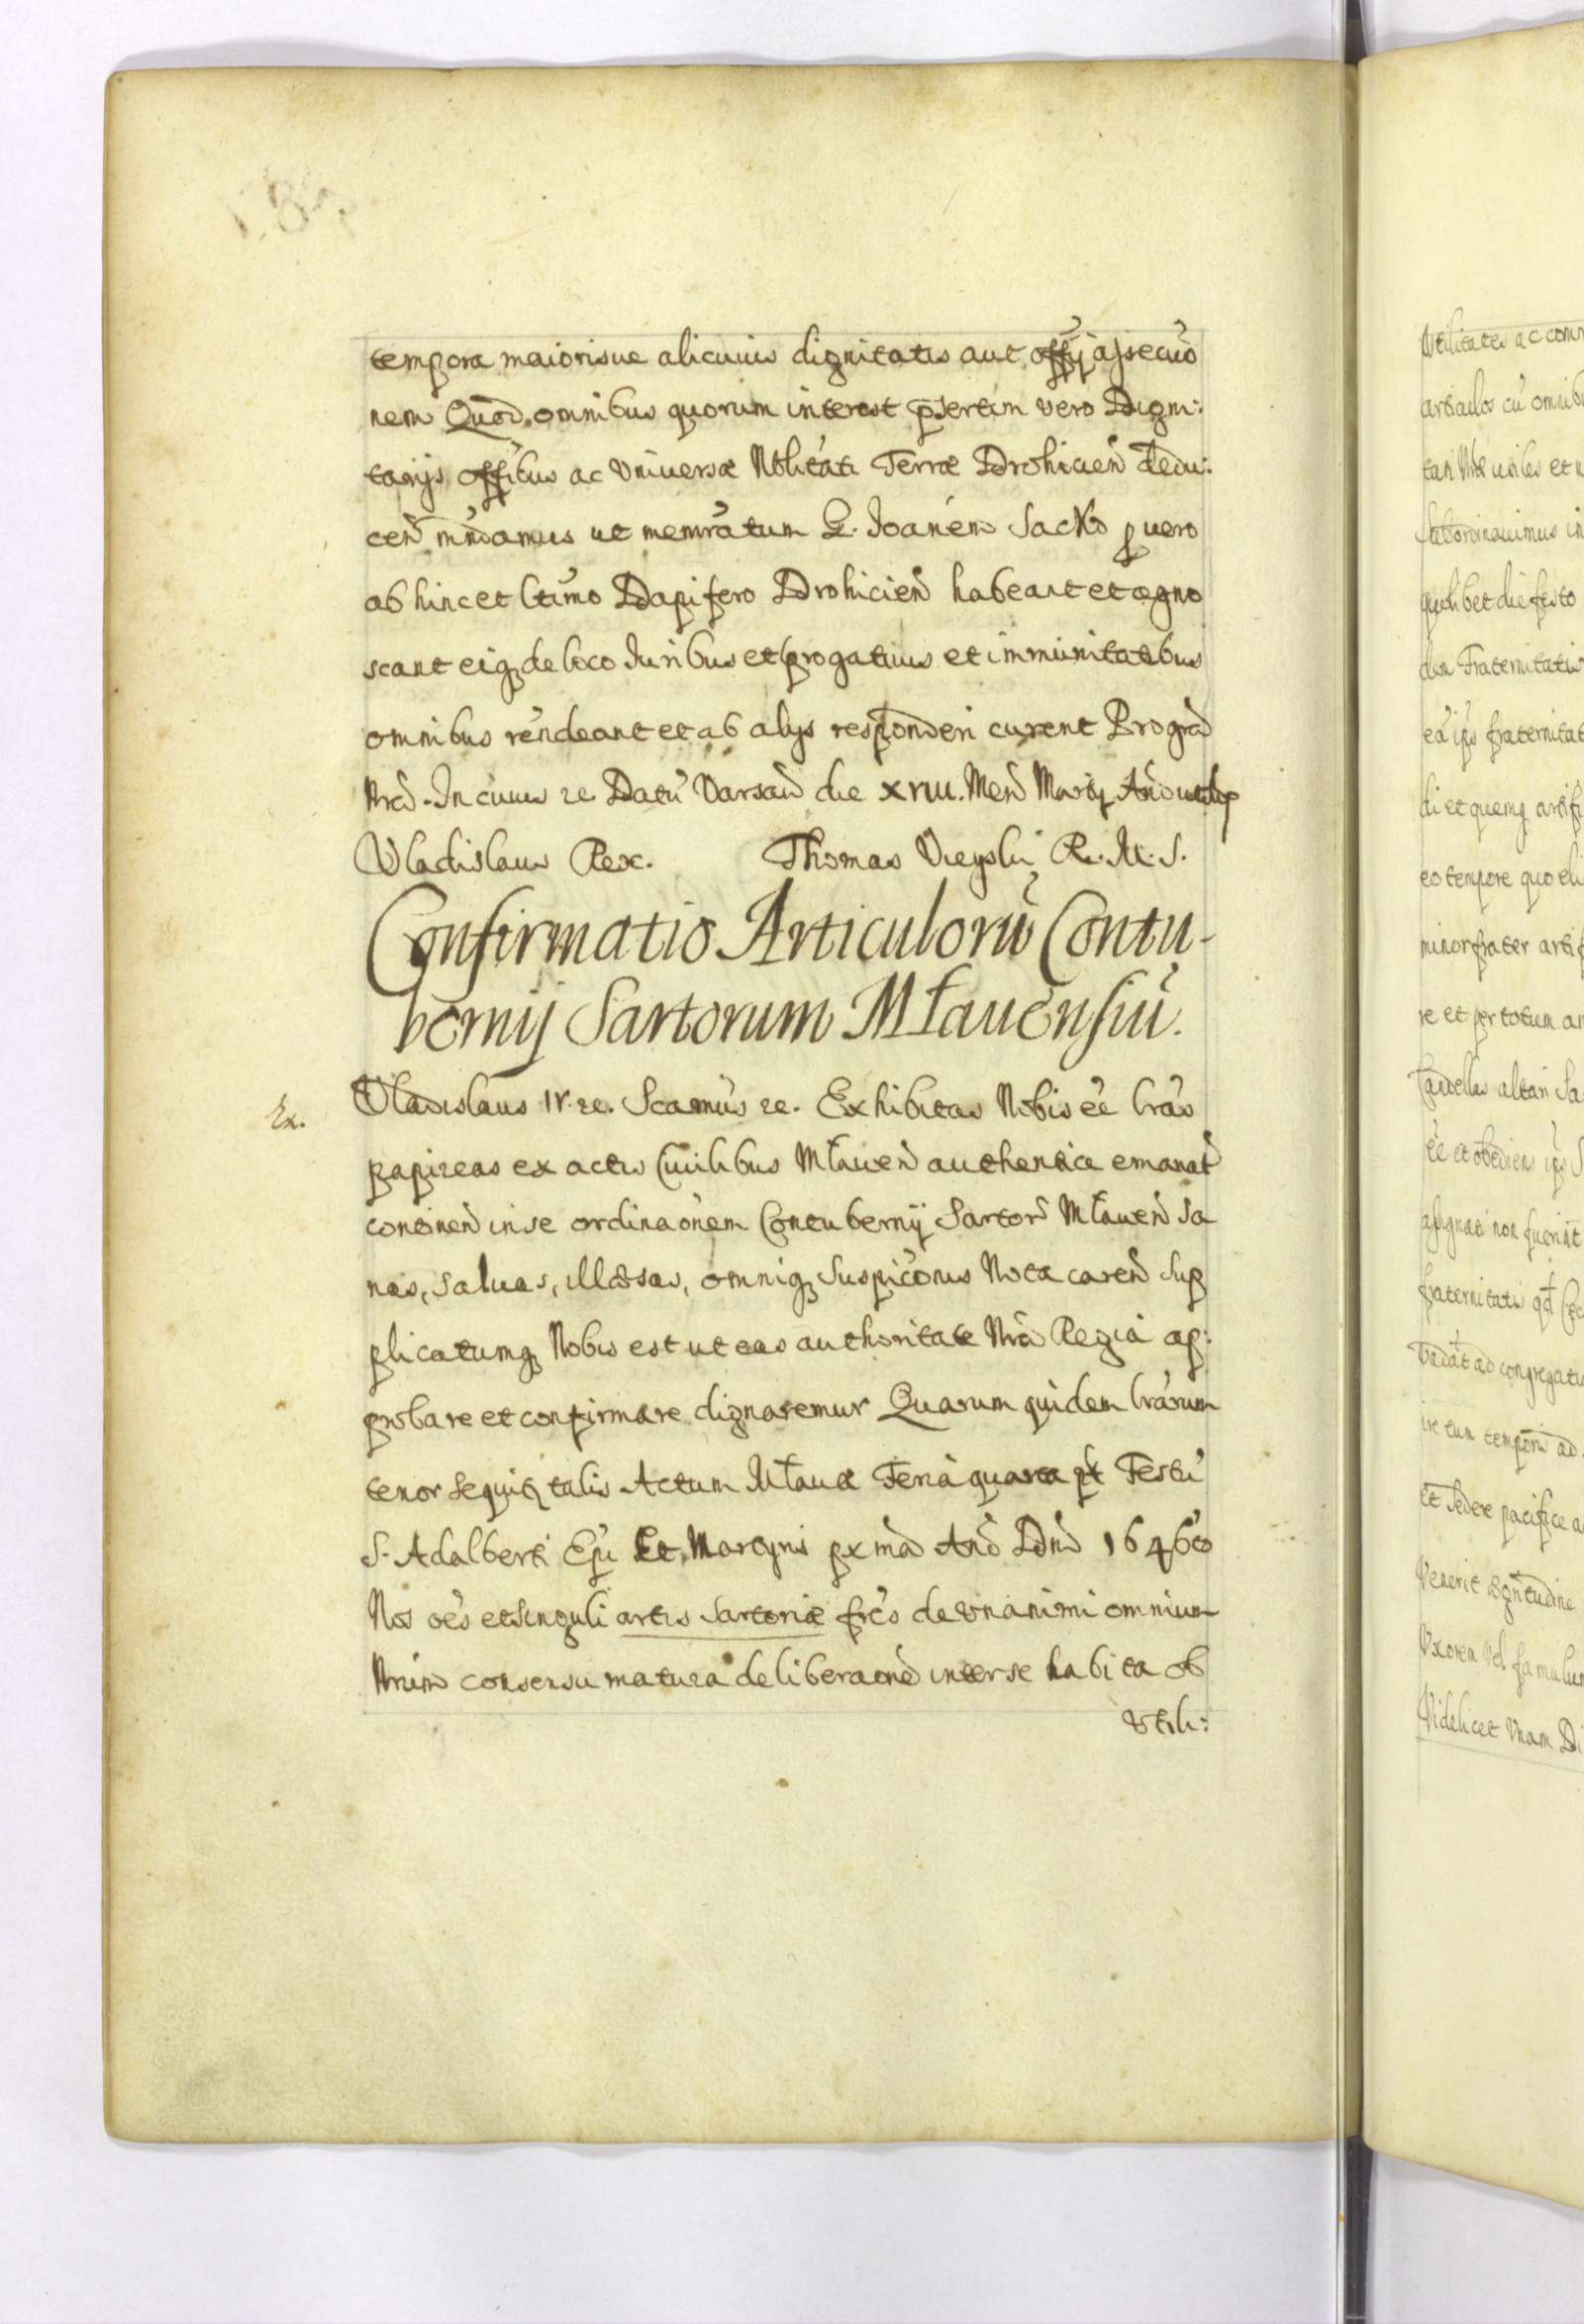 tempora maiorisue alicuius dignitatis aut offij assecuõ
nem Quod omnibus quorum interest p̃sertim vero Digni:
tarijs offibus ac vniversæ Nblitati Terræ Drohicien̄ dedu:
cen̄ mn̄damus ut memratum G. Joanem Sacko p vero
ab hinc et ltimo Dapifero Drohicien̄ habeant et agno
scant eiq₃ de loco Juribus et progatiuis et immunitatibus
omnibus rendeant et ab alijs responderi curent Pro gra̅
Nra̅. In cuius re Datu̅ Varsav̄ die XVIII. Men̄ Martij Ano̅ ut sup
Vladislaus Rex. Thomas Vieyski R. M. S.
Confirmatio Articuloru̅ Contu-
bernij Sartorum Młauensiu̅.
Ex.
Vladislaus IV. re. Scamus re. Exhibitas Nobis e͠e lra̅s
papireas ex actis Ciuilibus Młauen̄ authentice emanat̄
continen̄ in se ordinao̅nem Contubernij Sartor̄ Młauen̄ sa
nas, saluas, illæsas, omniq₃ suspico̅nis Nota caren̄ Sup
plicatumq₃ Nobis est ut eas authoritate Nra̅ Regia ap:
probare et confirmare dignaremur Quarum quidem lra̅rum
tenor sequit talis Actum Młauæ Feria quarta pt Festu̅
S. Adalberti Epi Et Martyris pxma̅ Ano̅ Dn̄i 1646to
Nos oe̅s et singuli artis sartoriæ fre̅s de vnanimi omnium
Nrum consensu matura deliberao̅ne inter se habita ob
vtili:
Vtilitatem ac com
articulos cu̅ omnib
quolibet die festo
dem Fraternitatis
ea̅ ips fraternitat
di et quemq artifi
eo tempore quo eli
minor frater artif
re et per totum an
Candellas altari Sa
assignati non fuerint
fraternitatis qd
ad congregati
et sedere pacifice a
Venerit
Vxorem vel famulum
Videlicet Vnam Di